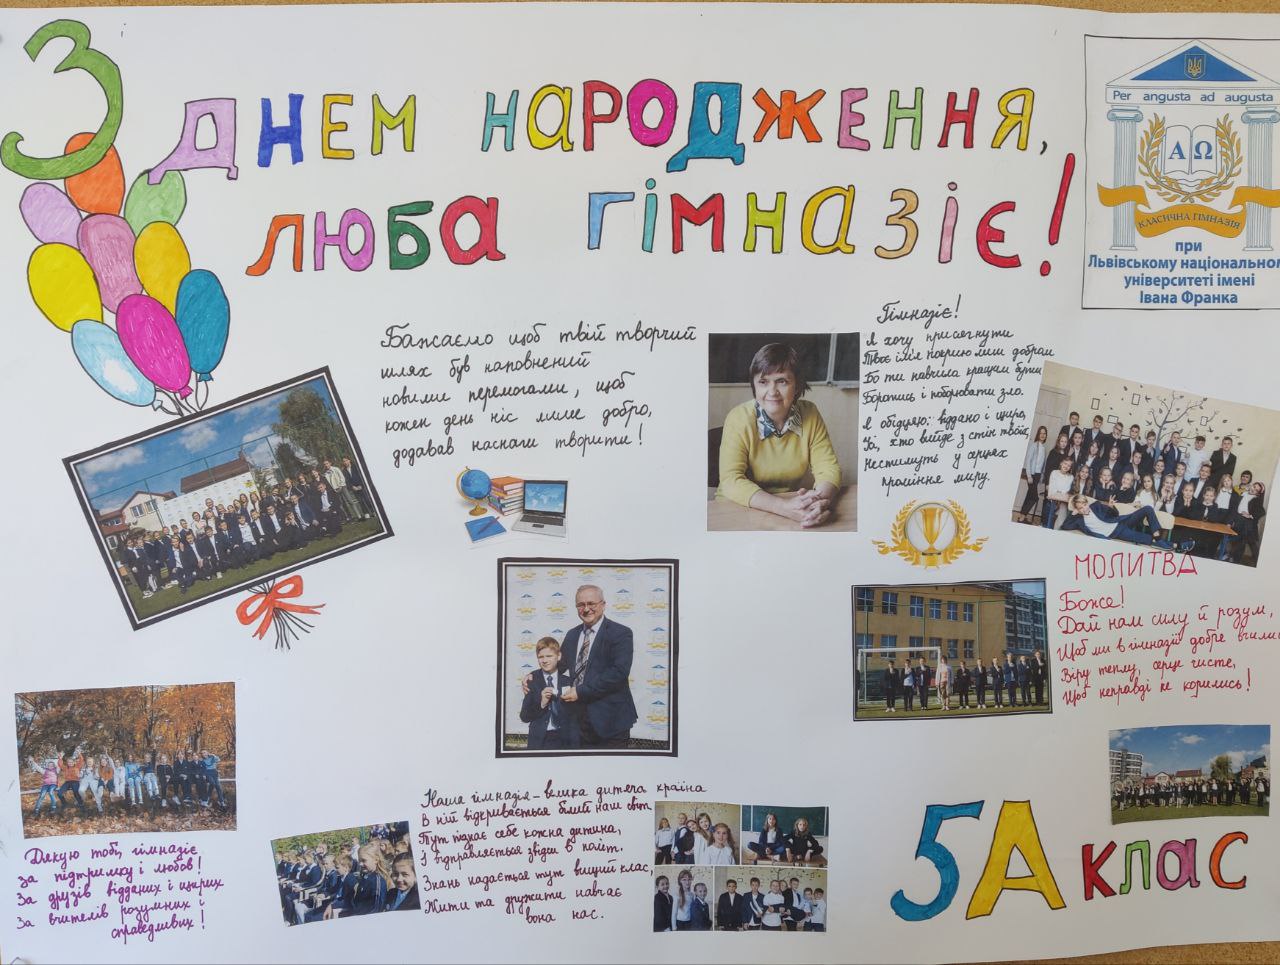 З ДНЕМ НАРОДЖЕННЯ,
ЛЮБА ГІМНАЗІЄ!
Per angusta ad augusta
Α Ω
КЛАСИЧНА ГІМНАЗІЯ
при
Львівському національному
університеті імені
Івана Франка
Бажаємо щоб твій творчий
шлях був наповнений
новими перемогами, щоб
кожен день ніс лише добро,
додавав наснаги творити!
Гімназіє!
Я хочу присягнути
Твоє ім'я покрию лиш добром
Бо ти навчила кращим бути
Боротись і поборювати зло.
Я обіцяю: віддано і щиро,
Усі, хто вийде з стін твоїх,
Нестимуть у серцях
проміння миру.
МОЛИТВА
Боже!
Дай нам силу й розум,
Щоб ми в гімназії добре вчились
Віру теплу, серце чисте,
Щоб неправді не корились!
Дякую тобі, гімназіє
За підтримку і любов!
За друзів відданих і щирих
За вчителів розумних і
справедливих!
Наша гімназія – велика дитяча країна
В ній відкривається білий наш світ
Тут пізнає себе кожна дитина,
І відправляється звідси в політ.
Знань кадається тут вищий клас,
Жити та дружити навчає
вона нас.
5А клас